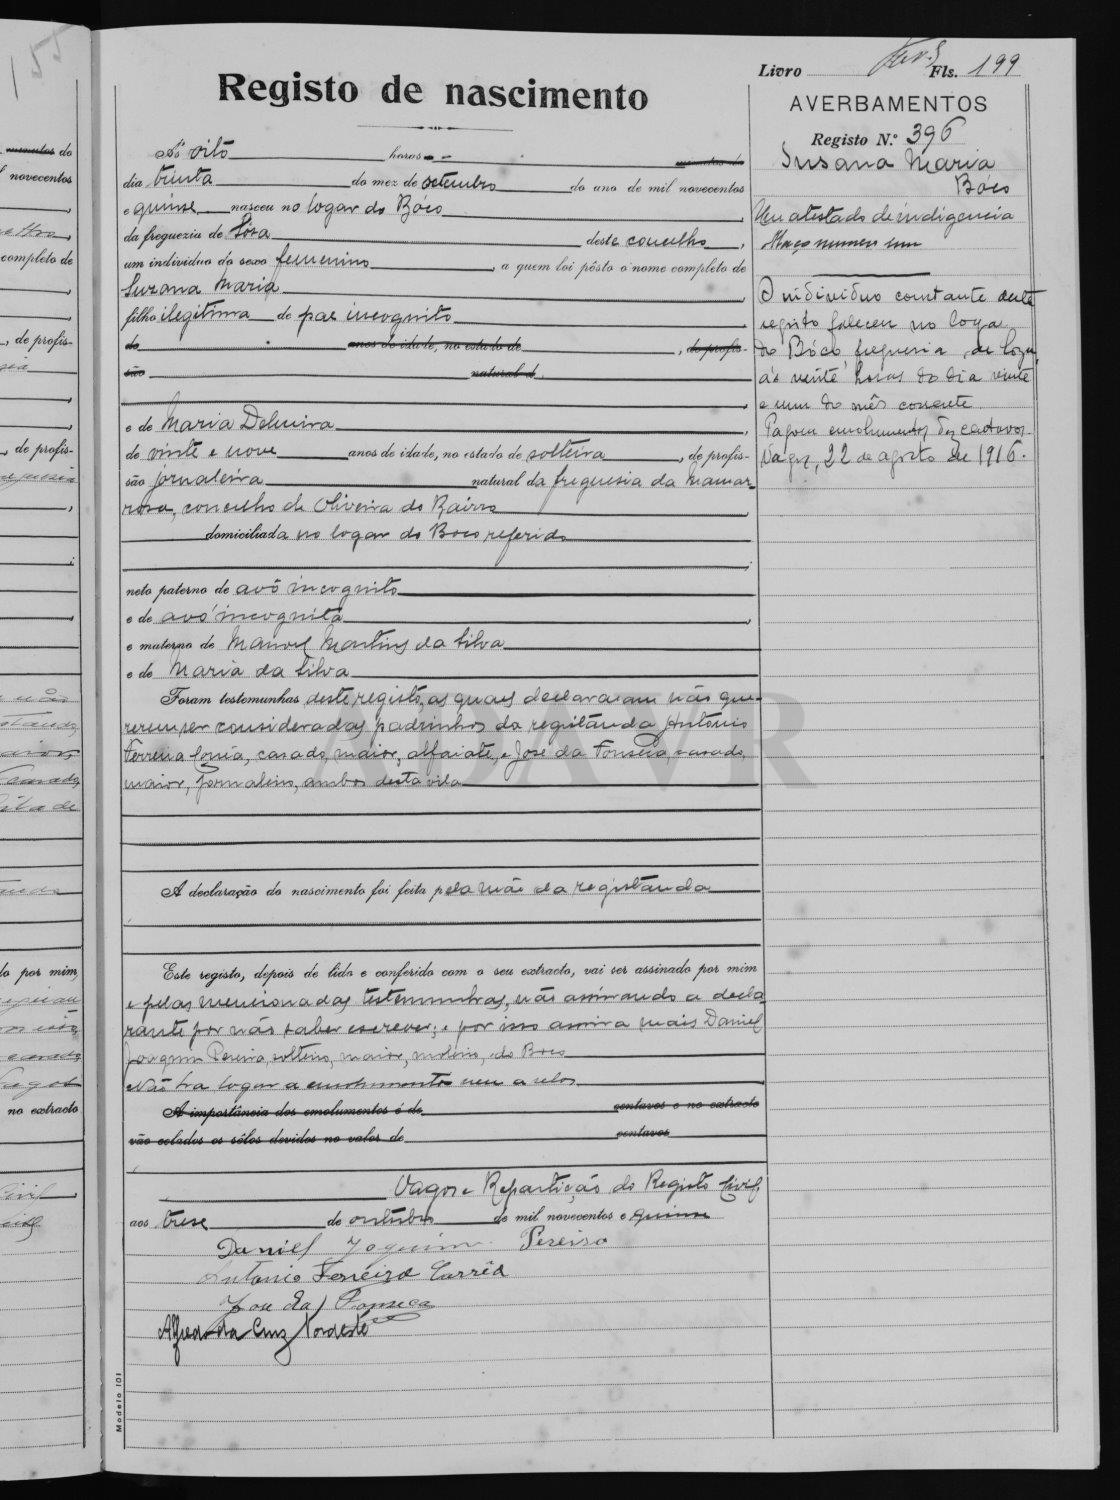 155
Livro Fls. 199
Registo de nascimento
Ás oito horas minutos do
dia trinta do mez de setembro do ano de mil novecentos
e quinse nasceu no logar do Bóco,
da freguezia de Sôsa deste concelho,
um individuo do sexo femenino, a quem foi pôsto o nome completo de
Suzana Maria,
filho ilegitima de pae incognito,
de anos de idade, no estado de, de profis-
são natural d
e de Maria Delmira,
de vinte e nove anos de idade, no estado de solteira, de profis-
são jornaleira natural da freguesia da Mamar-
rosa, concelho de Oliveira do Bairro,
domiciliada no logar do Boco referido
neto paterno de avô incognito
e de avó incognita,
e materno de Manoel Martins da Silva
e de Maria da Silva
Foram testemunhas deste registo, as quaes declararam não que-
rerem ser consideradas padrinhos da registânda, António
Ferreira, casado, maior, alfaiate, e José da Fonseca, casado,
maior, jornaleiro, ambos desta vila
A declaração do nascimento foi feita pela mãe da registânda
Este registo, depois de lido e conferido com o seu extracto, vai ser assinado por mim
e pelas mencionadas testemunhas, não assinando a decla-
rante por não saber escrever; e por isso assina mais Daniel
Joaquim Pereira, solteiro, maior, moleiro, do Boco
Não ha logar a emolumentos nem a selos
A importância dos emolumentos é de centavos e no extracto
vão colados os sêlos devidos no valor de centavos
Vagos e Repartição do Registo Civil,
aos trese de outubro de mil novecentos e quinse
Daniel Joquim Pereira
Antonio Ferreira Corrêa
Jose da Fonseca
Alfredo da Cruz Nordeste
Modelo 101
AVERBAMENTOS
Registo N.º 396
Susana Maria
Bóco
Um atestado de indigencia
Maço numero um
O individuo constante deste
registo faleceu no logar
do Bóco, freguesia de Soza,
ás vinte horas do dia vinte
e um do mês corrente.
Pagou emolumentos dez centavos.
Vagos, 22 de agosto de 1916.
ADAVR